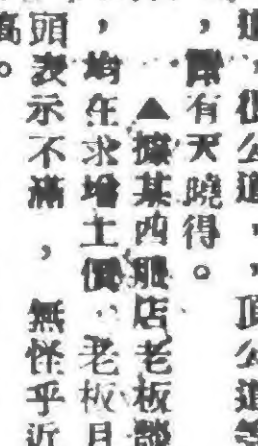 道，很公道，，頂公道等
，固有天曉得。
▲據某西服店老板談
，均在求增工價，老板且
頭表示不滿，無怪乎近
高。